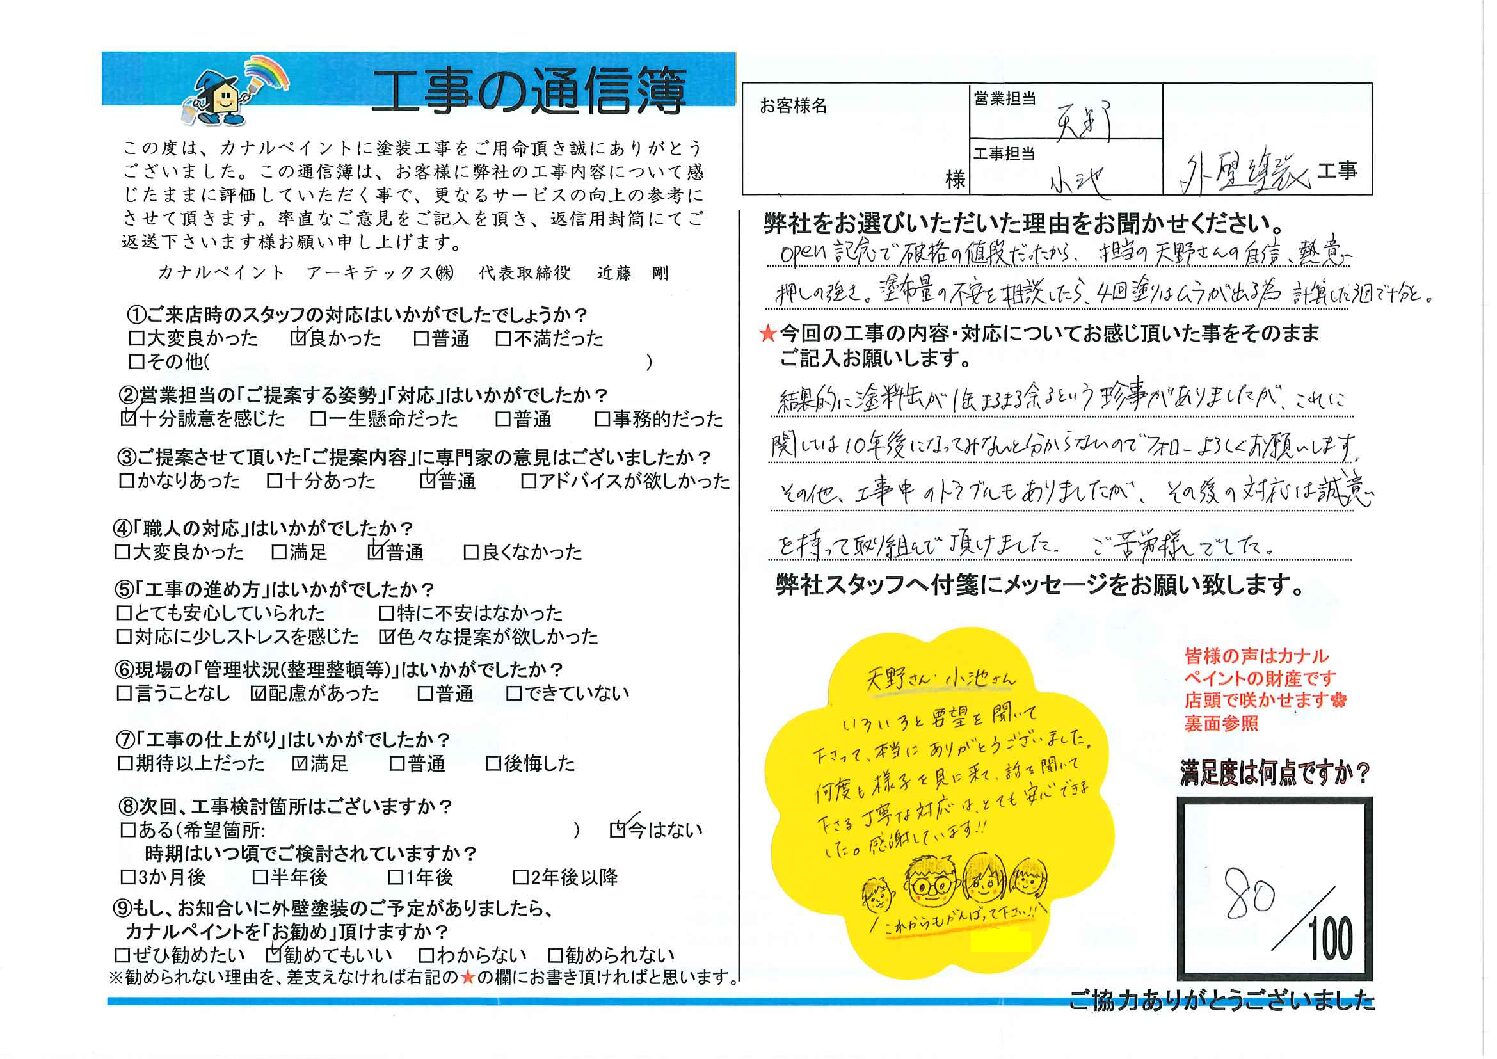 工事の通信簿
この度は、カナルペイントに塗装工事をご用命頂き誠にありがとう
ございました。この通信簿は、お客様に弊社の工事内容について感
じたままに評価していただく事で、更なるサービスの向上の参考に
させて頂きます。率直なご意見をご記入を頂き、返信用封筒にてご
返送下さいます様お願い申し上げます。
カナルペイント アーキテックス㈱ 代表取締役 近藤 剛
①ご来店時のスタッフの対応はいかがでしたでしょうか？
□大変良かった ☑良かった □普通 □不満だった
□その他( )
②営業担当の｢ご提案する姿勢｣｢対応｣はいかがでしたか？
☑十分誠意を感じた □一生懸命だった □普通 □事務的だった
③ご提案させて頂いた｢ご提案内容｣に専門家の意見はございましたか？
□かなりあった □十分あった ☑普通 □アドバイスが欲しかった
④｢職人の対応｣はいかがでしたか？
□大変良かった □満足 ☑普通 □良くなかった
⑤｢工事の進め方｣はいかがでしたか？
□とても安心していられた □特に不安はなかった
□対応に少しストレスを感じた ☑色々な提案が欲しかった
⑥現場の｢管理状況(整理整頓等)｣はいかがでしたか？
□言うことなし ☑配慮があった □普通 □できていない
⑦｢工事の仕上がり｣はいかがでしたか？
□期待以上だった ☑満足 □普通 □後悔した
⑧次回、工事検討箇所はございますか？
□ある(希望箇所: ) ☑今はない
時期はいつ頃でご検討されていますか？
□3か月後 □半年後 □1年後 □2年後以降
⑨もし、お知合いに外壁塗装のご予定がありましたら、
カナルペイントを｢お勧め｣頂けますか？
□ぜひ勧めたい ☑勧めてもいい □わからない □勧められない
※勧められない理由を、差支えなければ右記の★の欄にお書き頂ければと思います。
お客様名
様
営業担当
天野
工事担当
小池
外壁塗装工事
弊社をお選びいただいた理由をお聞かせください。
open記念で破格の値段だったから、担当の天野さんの自信、熱意
押しの強さ。塗布量の不安を相談したら、4回塗りはムラが出る為 計算した3回で十分と。
★今回の工事の内容･対応についてお感じ頂いた事をそのまま
ご記入お願いします。
結果的に塗料缶が1缶まるまる余るという珍事がありましたが、これに
関しては10年後になってみないと分からないのでフォローよろしくお願いします。
その他、工事中のトラブルもありましたが、その後の対応は誠意
を持って取り組んで頂けました。ご苦労様でした。
弊社スタッフへ付箋にメッセージをお願い致します。
天野さん・小池さん
いろいろと要望を聞いて
下さって、本当にありがとうございました。
何度も様子を見に来て、話を聞いて
下さる丁寧な対応は、とても安心できま
した。感謝しています!!
これからもがんばって下さい!!
皆様の声はカナル
ペイントの財産です
店頭で咲かせます✽
裏面参照
満足度は何点ですか？
80/100
ご協力ありがとうございました